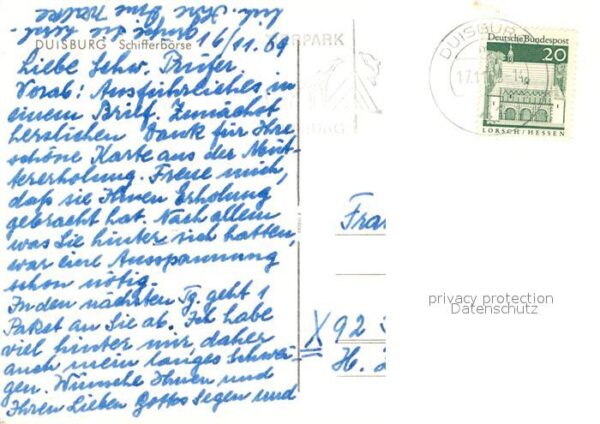 DUISBURG Schifferbörse
16/11.69
Liebe Schw. Prüfer.
Vorab: Ausführliches in
einem Brief. Zunächst
herzlichen Dank für Ihre
schöne Karte aus der Müt-
tererholung. Freue mich,
daß sie Ihnen Erholung
gebracht hat. Nach allem
was Sie hinter sich hatten,
war eine Ausspannung
schon nötig.
In den nächsten Tg. geht 1
Paket an Sie ab. Ich habe
viel hinter mir, daher
auch mein langes Schwei-
gen. Wünsche Ihnen und
Ihren Lieben Gottes Segen und
durch die
Ihre
DUISBURG
17.11
Deutsche Bundespost
20
LORSCH/HESSEN
X 92
H.
privacy protection
Datenschutz